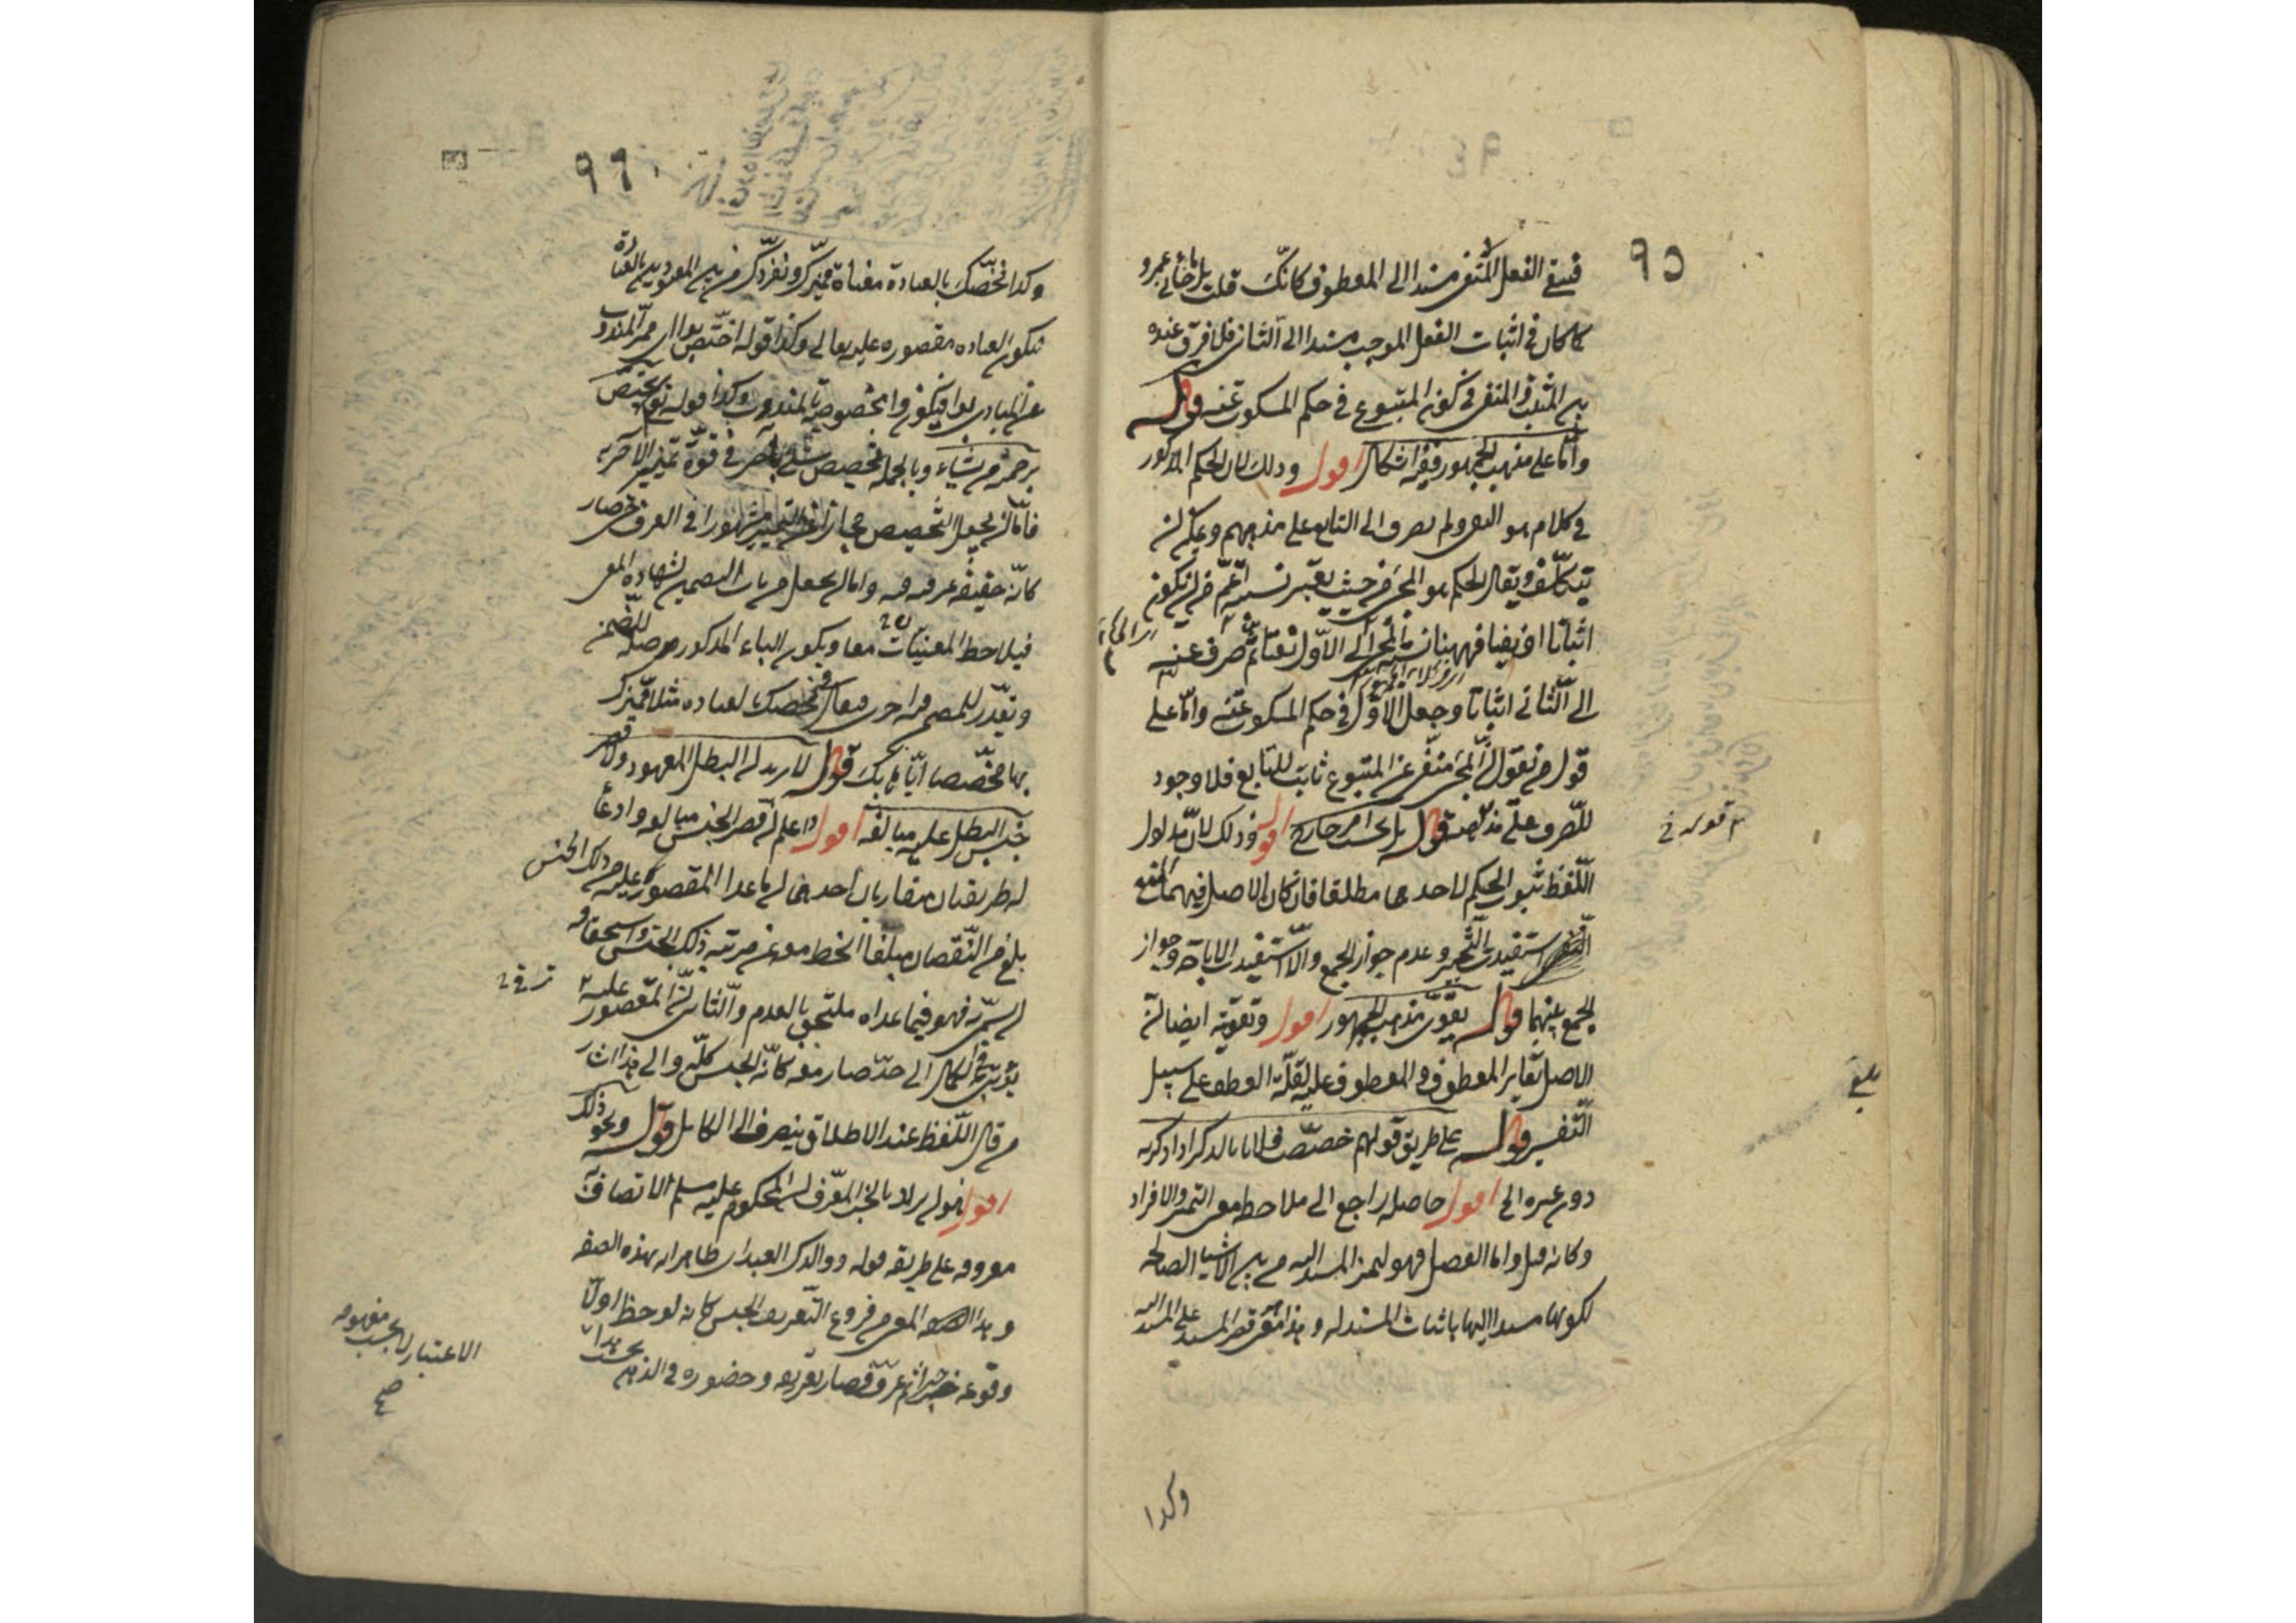 ٩٥
فينبغى الفعل المنفى مسندا الى المعطوف كانك قلت بل ما جائى عمرو
كما كان فى اثبات الفعل الموجب مسندا الى الثانى فلا فرق عنده
بين المثبت والمنفى فى كون المتبوع فى حكم المسكوت عنه قوله
واما على مذهب الجمهور ففيه اشكال اقول وذلك لان الحكم المذكور
فى كلام هو النفى ولم يصرف الى التابع على مذهبهم ويمكن ان
يتكلف ويقال الحكم هو المجئ من حيث يعتبر نسبته اعم من ان يكون
اثباتا او نفيا فههنا نسبة المجئ الى الاول نفيا ثم صرف عنه
الى الثانى اثباتا وجعل الاول فى حكم المسكوت عنه واما على
قول من يقول ان المجئ منفى عن المتبوع ثابت للتابع فلا وجود
للصرف على مذهبه قوله بل بحسب امر خارج اقول وذلك لان مدلول
اللفظ ثبوت الحكم لاحدهما مطلقا فان كان الاصل فيهما المنع
استفيد التخيير وعدم جواز الجمع والا استفيد الاباحة وجواز
الجمع بينهما قوله يقوى مذهب الجمهور اقول وتقويته ايضا ان
الاصل تغاير المعطوف والمعطوف عليه لقلة العطف على سبيل
التفسير قوله على طريق قولهم خصصت فلانا بالذكر اذا ذكرته
دون غيره الخ اقول حاصله راجع الى ملاحظة معنى التميز والافراد
وكانه قيل واما الفصل فهو لتميز المسند اليه من بين الاشياء الصالحة
لكونها مسندا اليها باثبات المسند له وهذا معنى قصر المسند على المسند اليه
قوله
بلغ
وكذا
٩٦
وكذا نخصك بالعبادة معناه نميزك ونفردك من بين المعبودين بالعبادة
فتكون العبادة مقصورة عليه تعالى وكذا قوله اختص بوا اى ميز المندوب
عن المنادى بوا فيكون وا مخصوصة بالمندوب وكذا قوله تع يختص
برحمته من يشاء وبالجملة تخصيص شئ بآخر فى قوة تمييز الآخر به
فاما ان يجعل التخصيص مجازا عن التمييز مشهورا فى العرف حتى صار
كانه حقيقة عرفية واما ان يجعل من باب التضمين لشهادة المعنى
فيلاحظ المعنيان معا ويكون الباء المذكور من صلة المضمن
ويقدر للمضمن فيه اخرى فيقال نخصك بالعبادة مثلا نميزك
بها مخصصا اياها بك قوله لا يريد ان البطل المعهود ولا قصر
جنس البطل عليه مبالغة اقول اعلم ان قصر الجنس مبالغة وادعاء
له طريقان متقاربان احدهما ان ما عدا المقصور عليه من ذلك الجنس
بلغ من النقصان مبلغا انحط معه عن مرتبة ذلك الجنس واستحقاق
ان يسمى به فهو فيما عداه ملتحق بالعدم والثانى ان المقصور عليه
ترقى فى الكمال الى حد صار معه كانه الجنس كله والى هذا اشار
من قال اللفظ عند الاطلاق ينصرف الى الكامل قوله ونحو ذلك
اقول قد يراد بالخبر المعرف ان المحكوم عليه مسلم الاتصاف به
معروفه على طريقة قوله ووالدك العبد اى ظاهر انه بهذه الصفة
وهذا المعنى من فروع التعريف الجنس كانه لوحظ اولا
وقوعه خبرا ثم عرف فصار تعريفه وحضوره فى الذهن بحسب هذا
الاعتبار لا بحسب مفهومه
صح